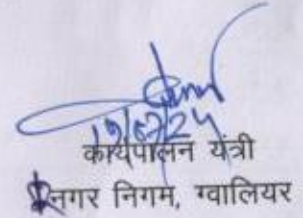 19/07/24
कार्यपालन यंत्री
नगर निगम, ग्वालियर